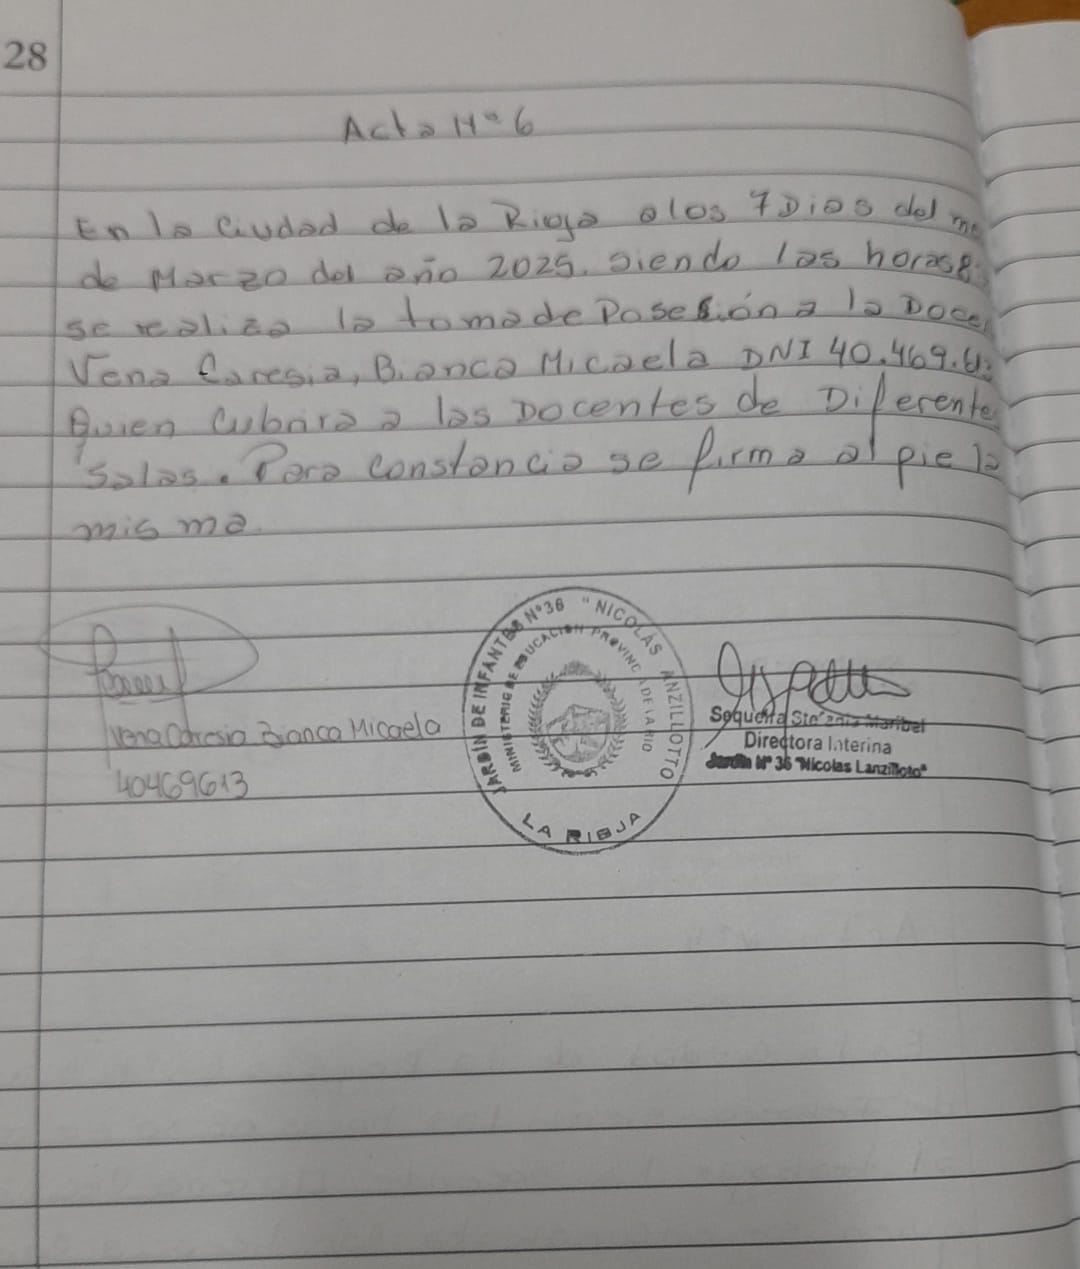 28
Acta N° 6
En la Ciudad de la Rioja a los 7 Dias del
de Marzo del año 2025. siendo las horas 8:
se realiza la toma de Posesión a la Docen
Vena Caresia, Bianca Micaela DNI 40.469.613
Quien Cubrira a las Docentes de Diferentes
Salas. Para Constancia se firma al pie la
misma.
Vena Caresia Bianca Micaela
40469613
JARDIN DE INFANTES N°36 "NICOLAS LANZILLOTTO
MINISTERIO DE EDUCACION PROVINCIA DE LA RIO
LA RIOJA
Sequeira Stefania Maribel
Directora Interina
Jardin N° 36 "Nicolas Lanzilloto"